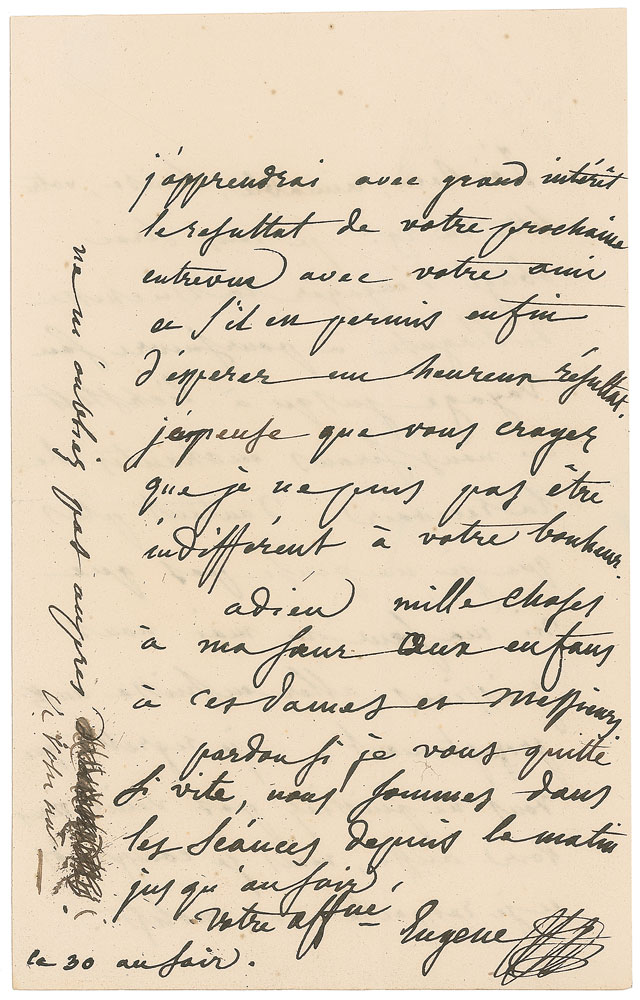 j'apprendrai avec grand intérêt
le resultat de votre prochaine
entrevue avec votre ami
et s'il en permis enfin
d'esperer un heureux résultat.
je pense que vous croyez
que je ne puis pas être
indifférent à votre bonheur.
adieu mille choses
à ma sœur aux enfans
à ces dames et messieurs
pardon si je vous quitte
si vite, nous sommes dans
les séances depuis le matin
jusqu'au soir
votre affné Eugene
le 30 au soir.
ne m'oubliez pas auprès